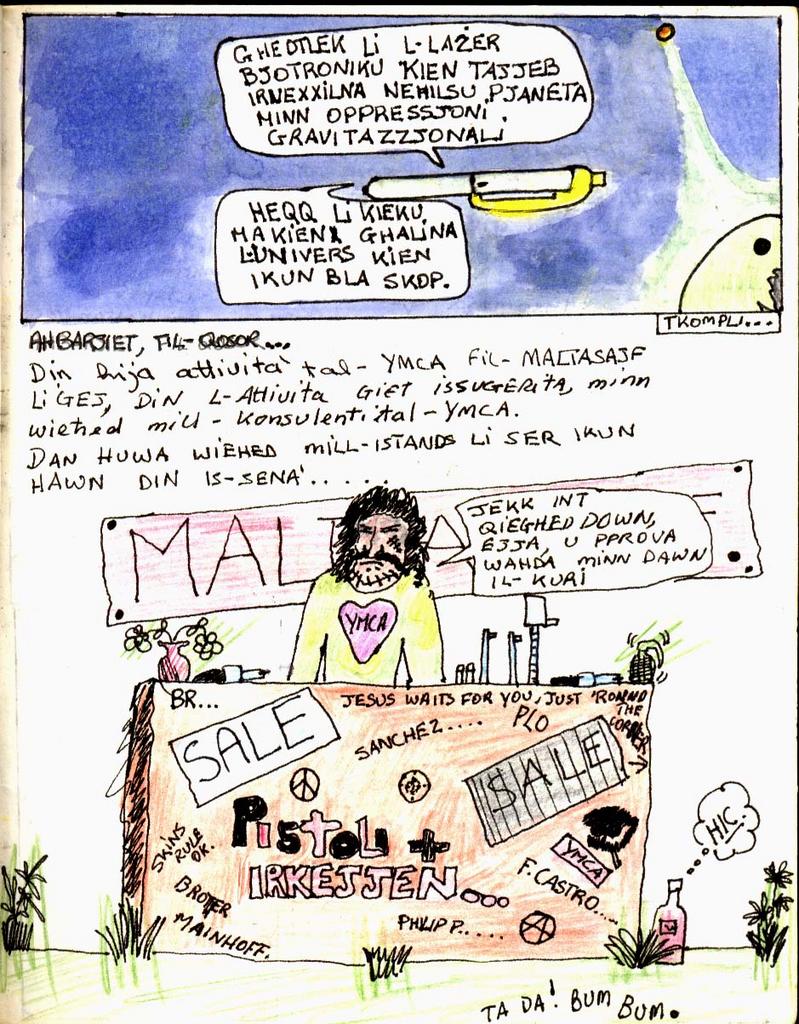 GHEDTLEK LI L-LAŻER
BJOTRONIKU KIEN TAJJEB
IRNEXXILNA NEHILSU PJANETA
MINN OPPRESSJONI
GRAVITAZZJONALI
HEQQ LI KIEKU
MA KIENX GHALINA
L-UNIVERS KIEN
IKUN BLA SKOP.
TKOMPLI...
AHBARJIET, FIL-QOSOR...
Din hija attivita' tal-YMCA FIL-MALTASAJF
LI GEJ, DIN L-Attivita GIET ISSUGERITA, minn
wiehed mill-Konsulenti tal-YMCA.
DAN HUWA WIEHED MILL-ISTANDS LI SER IKUN
HAWN DIN IS-SENA'.....
MAL
E
JEKK INT
QIEGHED DOWN,
EJJA, U PPROVA
WAHDA MINN DAWN
IL-KURI
YMCA
BR...
JESUS WAITS FOR YOU, JUST 'ROUND
THE
CORNER
SALE
SANCHEZ....
PLO
SALE
PISTOLI +
IRKEJJEN...
SKINS
RULE
OK.
BROTER
MAINHOFF.
YMCA
F. CASTRO....
PHILIP P.....
HIC.
TA DA! BUM BUM.